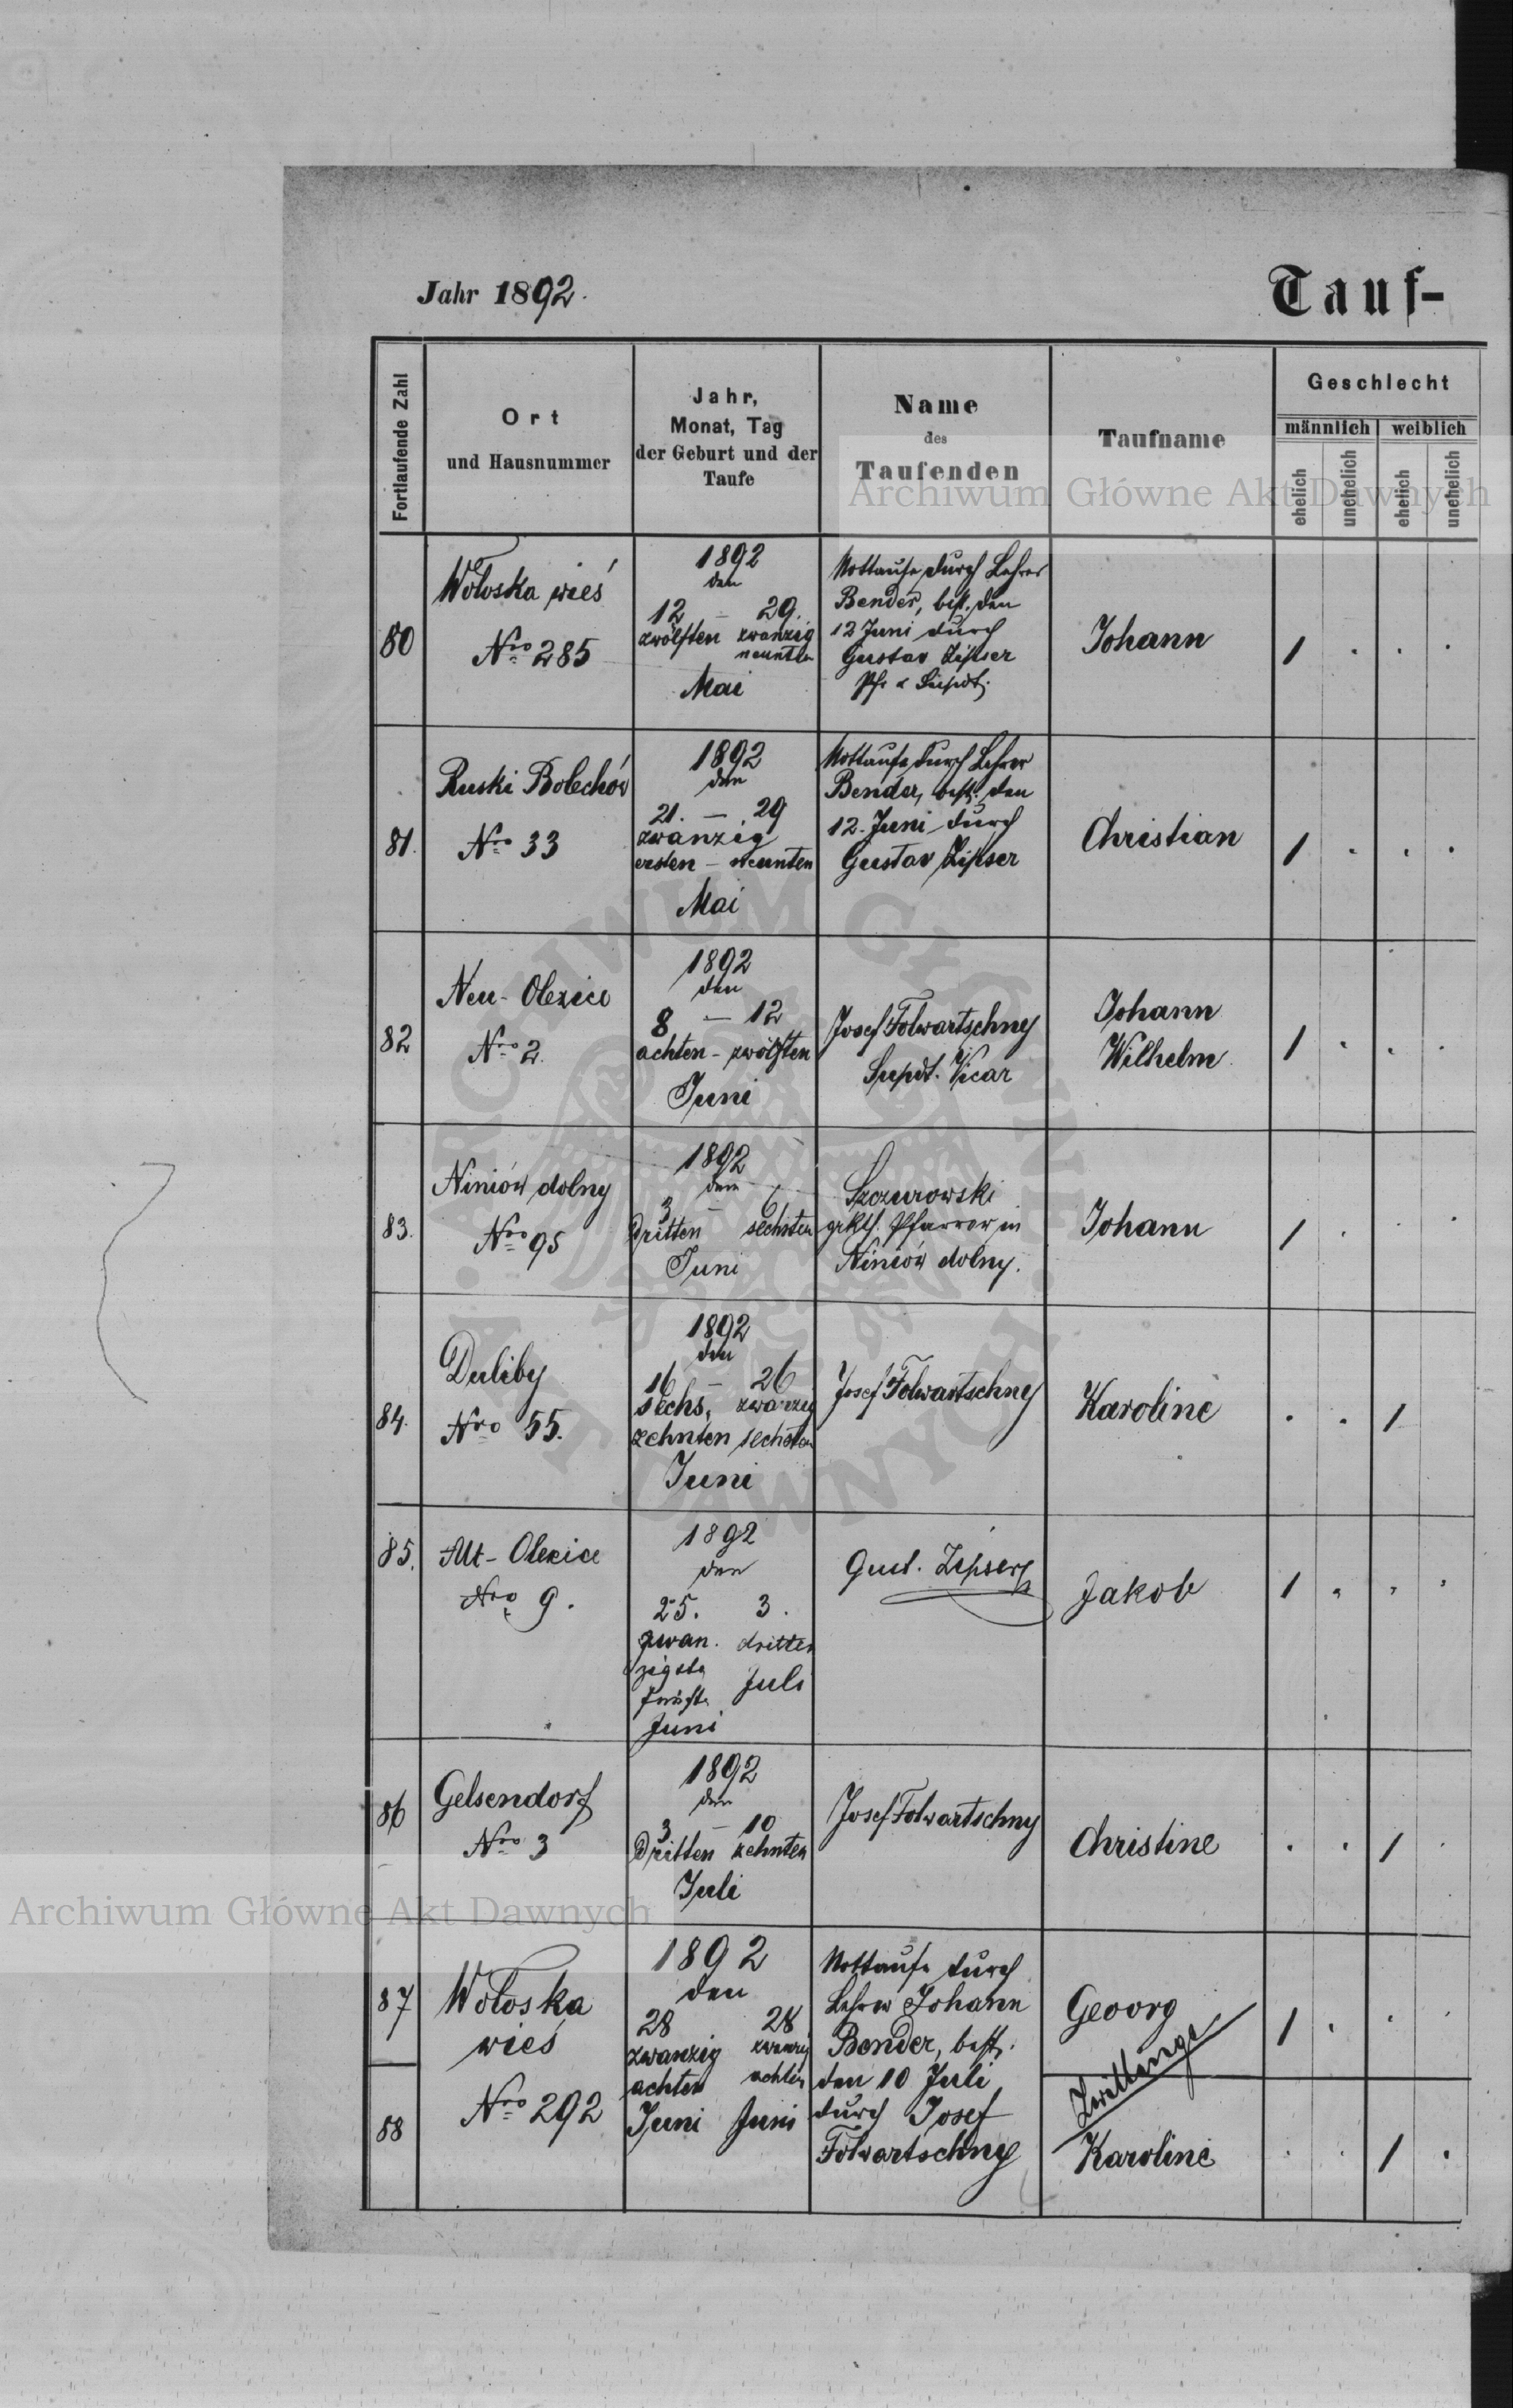 Jahr 1892.
Tauf-
Fortlaufende Zahl
Ort
und Hausnummer
Jahr,
Monat, Tag
der Geburt und der
Taufe
Name
des
Taufenden
Taufname
Geschlecht
männlich weiblich
ehelich
unehelich
ehelich
unehelich
Archiwum Główne Akt Dawnych
80
Wołoska wieś
Nro 285
1892
den
12 – 29.
zwölften zwanzig
neunten
Mai
Nottaufe durch Lehrer
Bender, best. den
12 Juni durch
Gustav Zipser
Pfr & Supdt.
Johann
1 . . .
81.
Ruski Bolechów
Nro 33
1892
den
21. – 29
zwanzig
ersten – neunten
Mai
Nottaufe durch Lehrer
Bender, best. den
12. Juni durch
Gustav Zipser
Christian
1 . . .
82
Neu-Olexice
Nro 2.
1892
den
8 – 12
achten – zwölften
Juni
Josef Folwartschny
Supdt. Vicar
Johann
Wilhelm
1 . . .
83.
Niniów dolny
Nro 95
1892
den
3 – 6
dritten sechsten
Juni
Szczurowski
grkth. Pfarrer in
Niniów dolny.
Johann
1 . . .
84.
Duliby
Nro 55.
1892
den
16 – 26
sechs, zwanzig
zehnten sechsten
Juni
Josef Folwartschny
Karoline
. . 1
85.
Alt-Olexice
Nro 9.
1892
den
25. 3.
zwan. dritten
zigste
Juli
fünfte
Juni
Gust. Zipser
Jakob
1 . . .
86
Gelsendorf
Nro 3
1892
den
3 – 10
dritten zehnten
Juli
Josef Folwartschny
Christine
. . 1 .
Archiwum Główne Akt Dawnych
87
Wołoska
wieś
Nro 292
1892
den
28 28
zwanzig zwanzig
achten achten
Juni Juni
Nottaufe durch
Lehrer Johann
Bender, best.
den 10 Juli
durch Josef
Folwartschny
Georg
1 . . .
Zwillinge
88
Karoline
. . 1 .
ARCHIWUM GŁÓWNE AKT DAWNYCH